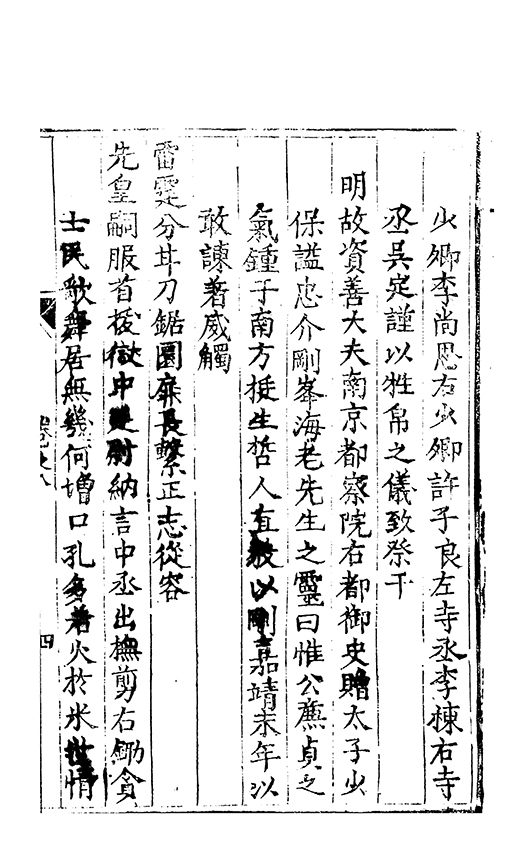 少卿李尚思右少卿許子良左寺丞李棟右寺
丞吳定謹以牲帛之儀致祭于
明故資善大夫南京都察院右都御史贈太子少
保謚忠介剛峯海老先生之靈曰惟公廉貞之
氣鍾于南方挺生哲人直毅以剛嘉靖末年以
敢諫著威觸
雷霆分甘刀鋸圜扉長繫正志從容
先皇嗣服首拔獄中尉納言中丞出撫剪右鋤貪
士民歌舞居無幾何增口孔多著火於氷世情
卷之八
四